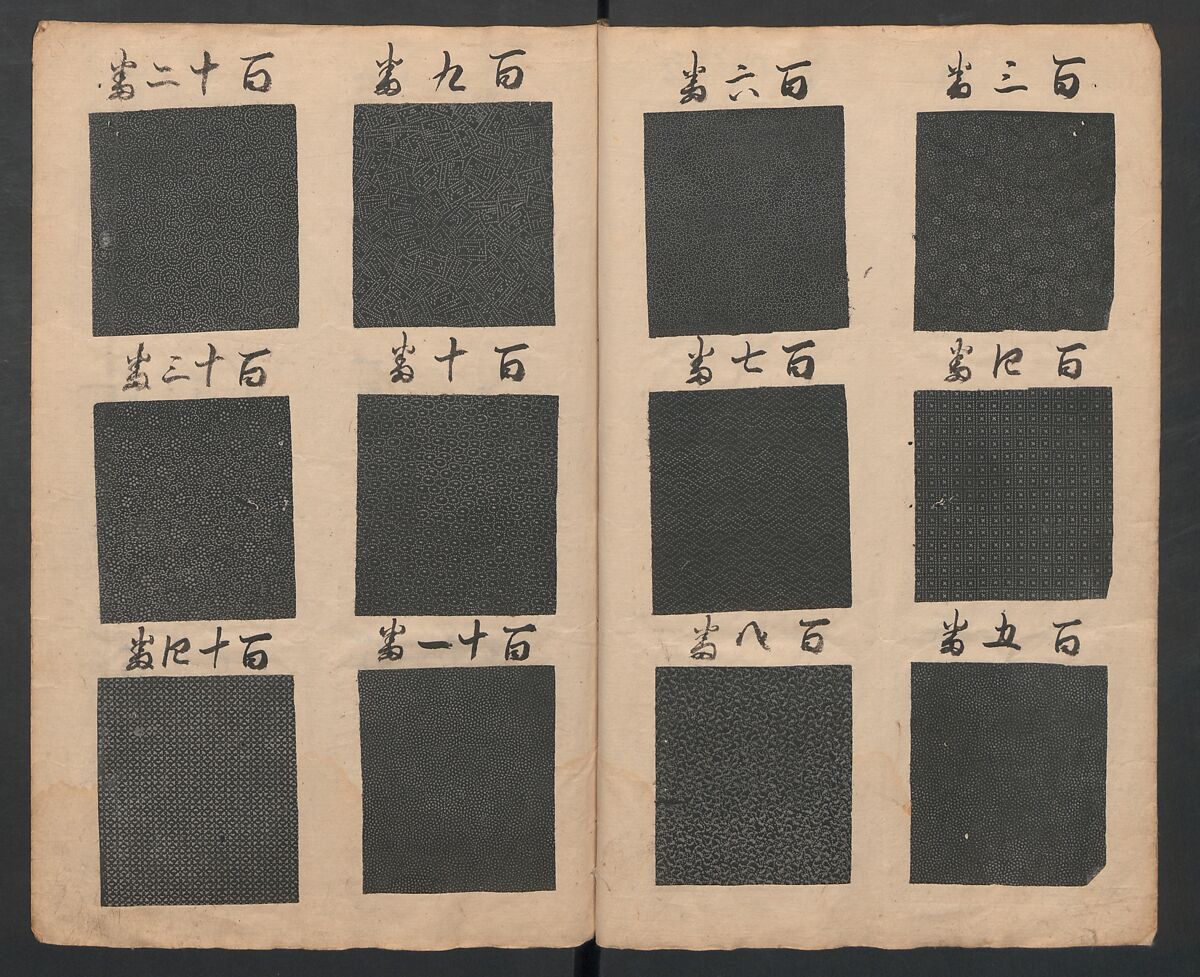 百三番
百四番
百五番
百六番
百七番
百八番
百九番
百十番
百十一番
百十二番
百十三番
百十四番